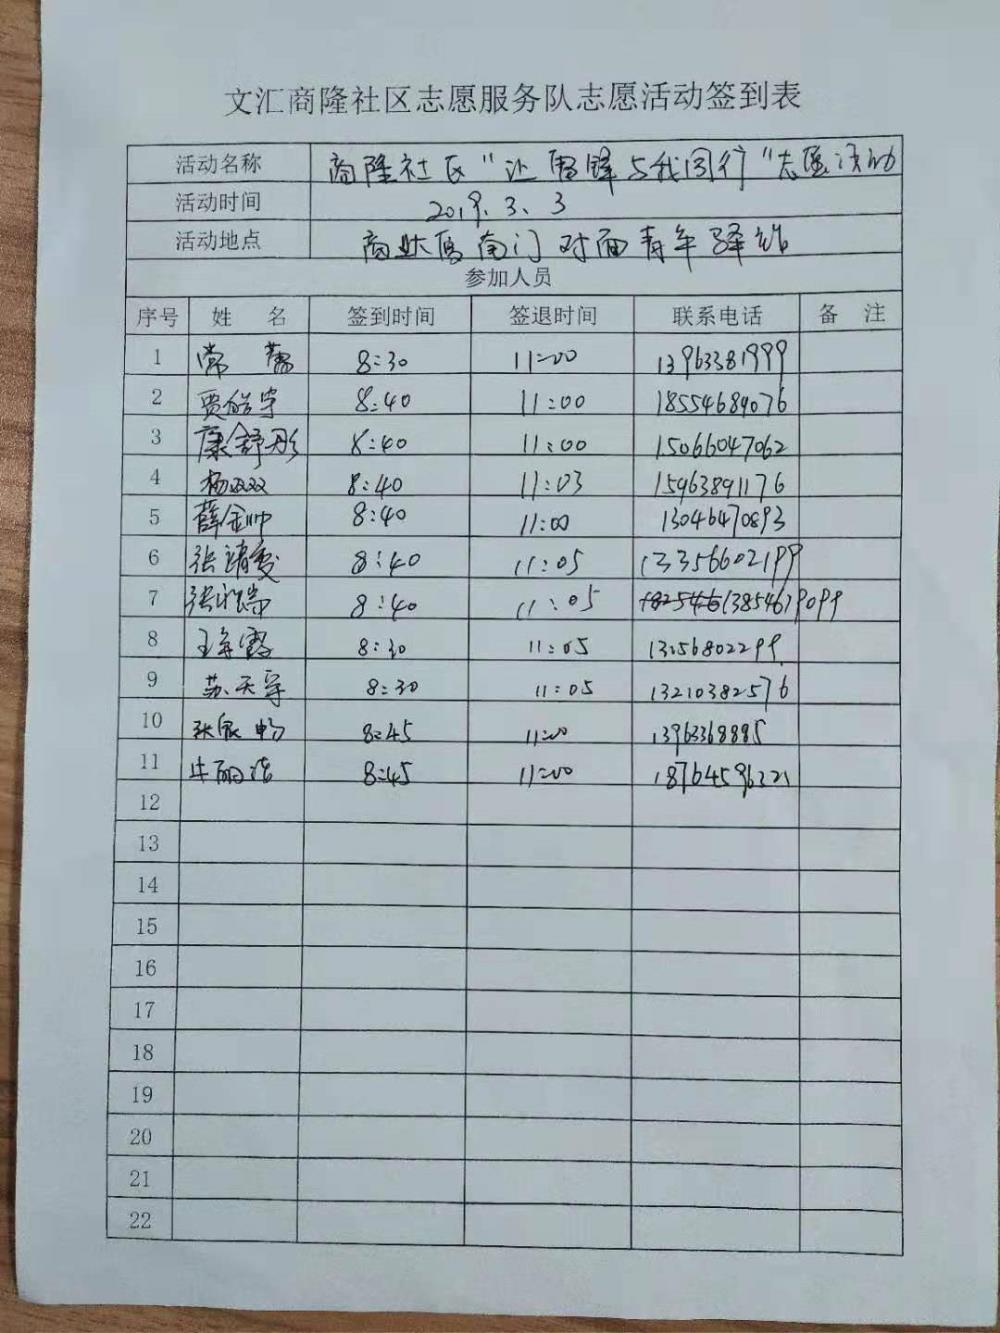 文汇商隆社区志愿服务队志愿活动签到表
活动名称 商隆社区"让雷锋与我同行"志愿活动
活动时间 2019.3.3
活动地点 商业局南门对面青年驿站
参加人员
序号 姓 名 签到时间 签退时间 联系电话 备 注
1 常 8:30 11:00 13963381999
2 贾皓宇 8:40 11:00 18554684076
3 康舒彤 8:40 11:00 15066047062
4 杨双双 8:40 11:03 15963891176
5 薛金帅 8:40 11:00 13046470893
6 张靖雯 8:40 11:05 13356602199
7 张 8:40 11:05 13854679099
8 王 霞 8:30 11:05
9 苏天宇 8:30 11:05 13210382576
10 张 畅 8:45 11:00 13963368885
11 牛丽洁 8:45 11:00 18764596321
12
13
14
15
16
17
18
19
20
21
22